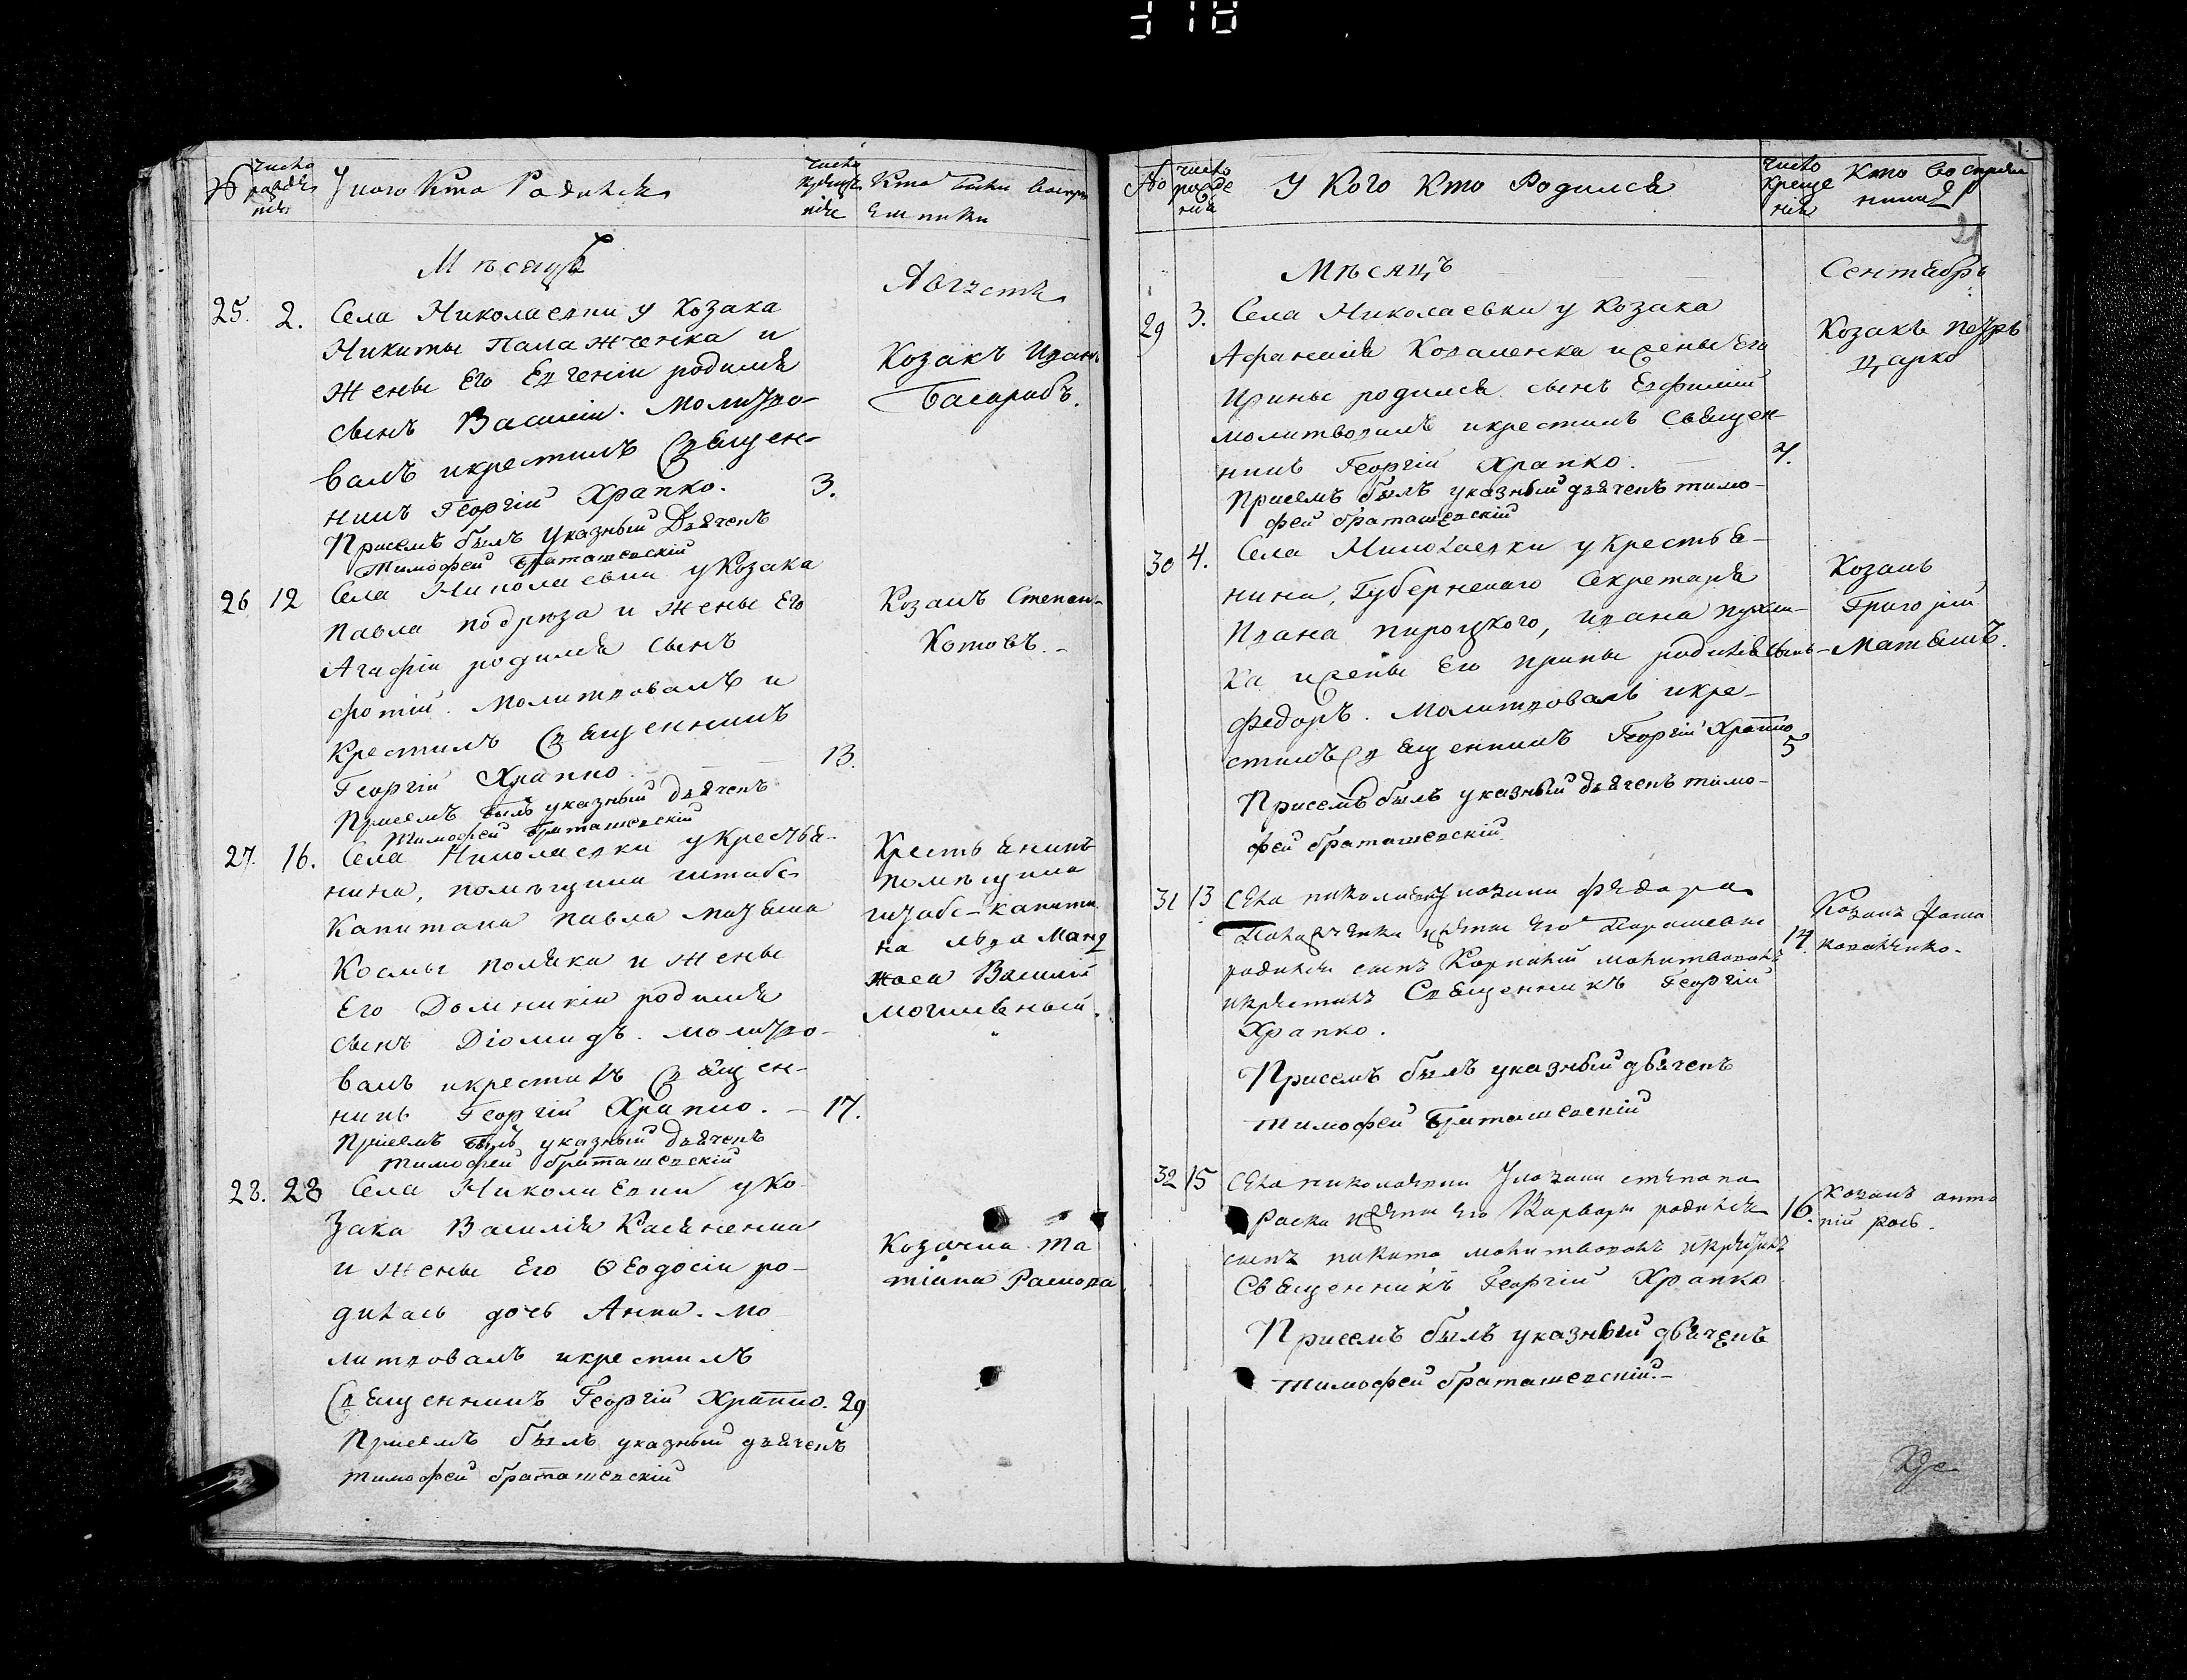 318
№
число
рожде
нія
У кого кто Родился
число
крещe
нія
Кто были воспри
емники
Мѣсяцъ
Августъ
25. 2. Села Николаевки у Козака
Никиты Паламженка и
жены Его Евгеніи родился
сынъ Василій. Молитво-
валъ и крестилъ Священ-
никъ Георгій Храпко. 3.
Присемъ былъ указный Дьячекъ
Тимофей Браташевскій
Козакъ Иванъ
Басарабъ.
26 12 Села Николаевки у Козака
Павла подрюза и жены Его
Агафіи родился сынъ
фотій. Молитвовалъ и
Крестилъ Священникъ
Георгій Храпко. 13.
Присемъ былъ указный дьячекъ
Тимофей Браташевскій
Козакъ Степанъ
Котовъ.
27. 16. Села Николаевки у Крестья-
нина, помѣщика штабс
Капитана Павла
Космы поляка и жены
Его Домникіи родился
сынъ Діомидъ. молитво-
валъ и крестилъ Священ-
никъ Георгій Храпко. - 17.
Присемъ былъ указный дьячекъ
Тимофей браташевскій
Крестьянинъ
помѣщика
штабс-капита
на Льва
Василій
могилевный.
28. 28 Села Николаевки у Ко-
зака Василія Касяненка
и жены Его Ѳеодосіи ро-
дилась дочь Анна. Мо
литвовалъ и крестилъ
Священникъ Георгій Храпко. 29
Присемъ былъ указный дьячекъ
тимофей браташевскій
Козачка та
тіана
№
число
рожде
нія
У Кого Кто Родился
число
креще
нія
Кто воспріем
ники
21
Мѣсяцъ
Сентябрь
29 3. Села Николаевки у Козака
Афанасія Коваленка и жены Его
Ирины родился сынъ Евфимій
молитвовалъ и крестилъ Священ-
никъ Георгій Храпко. 4.
Присемъ былъ указный дьячекъ тимо-
фей браташевскій
Козакъ Петръ
Царко
30 4. Села Николаевки у Крестья-
нина, Губернскаго Секретаря
Ивана пироцкого, ивана
ка и жены Его Ирины родился сынъ
федоръ. Молитвовалъ и кре-
стилъ Священникъ Георгій Храпко 5
Присемъ былъ указный дьячекъ тимо-
фей браташевскій
Козакъ
Григорій
Матяшъ.
31 13 Села николаевки у козака федора
и жены его Парасковіи
родился сынъ Корнилій молитвовалъ
и крестилъ Священникъ Георгій
Храпко. 14.
Присемъ былъ указный дьячекъ
тимофей Браташевскій
Козакъ фома
32 15 Села николаевки у козака степана
Раска и жены его Варвары родился
сынъ никита молитвовалъ и крестилъ
Священникъ Георгій Храпко 16.
Присемъ былъ указный дьячекъ
тимофей браташевскій.-
Козакъ анто
ній